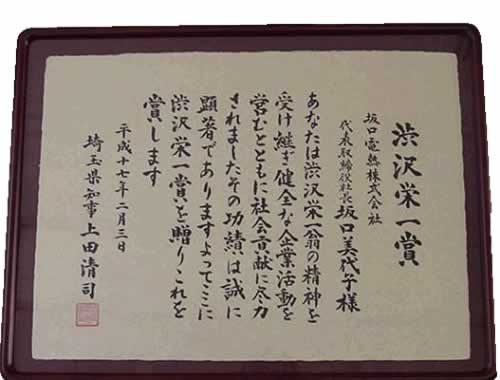 渋沢栄一賞
坂口電熱株式会社
代表取締役社長 坂口美代子様
あなたは渋沢栄一翁の精神を
受け継ぎ健全な企業活動を
営むとともに社会貢献に尽力
されましたその功績は誠に
顕著でありますよってここに
渋沢栄一賞を贈りこれを
賞します
平成十七年二月三日
埼玉県知事 上田清司